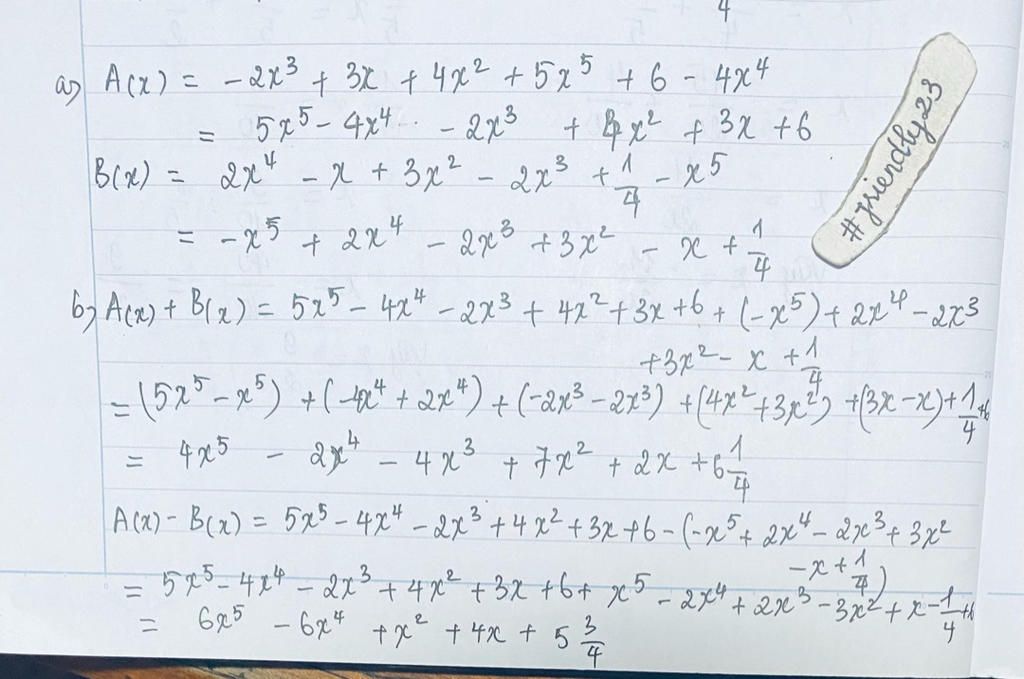 4
a) A(x) = -2x³ + 3x + 4x² + 5x⁵ + 6 - 4x⁴
= 5x⁵ - 4x⁴ - 2x³ + 4x² + 3x + 6
B(x) = 2x⁴ - x + 3x² - 2x³ + 1/4 - x⁵
= -x⁵ + 2x⁴ - 2x³ + 3x² - x + 1/4
#friendly23
b) A(x) + B(x) = 5x⁵ - 4x⁴ - 2x³ + 4x² + 3x + 6 + (-x⁵) + 2x⁴ - 2x³
+3x² - x + 1/4
= (5x⁵ - x⁵) + (-4x⁴ + 2x⁴) + (-2x³ - 2x³) + (4x² + 3x²) + (3x - x) + 1/4 + 6
= 4x⁵ - 2x⁴ - 4x³ + 7x² + 2x + 6 1/4
A(x) - B(x) = 5x⁵ - 4x⁴ - 2x³ + 4x² + 3x + 6 - (-x⁵ + 2x⁴ - 2x³ + 3x²
-x + 1/4)
= 5x⁵ - 4x⁴ - 2x³ + 4x² + 3x + 6 + x⁵ - 2x⁴ + 2x³ - 3x² + x - 1/4
= 6x⁵ - 6x⁴ + x² + 4x + 5 3/4